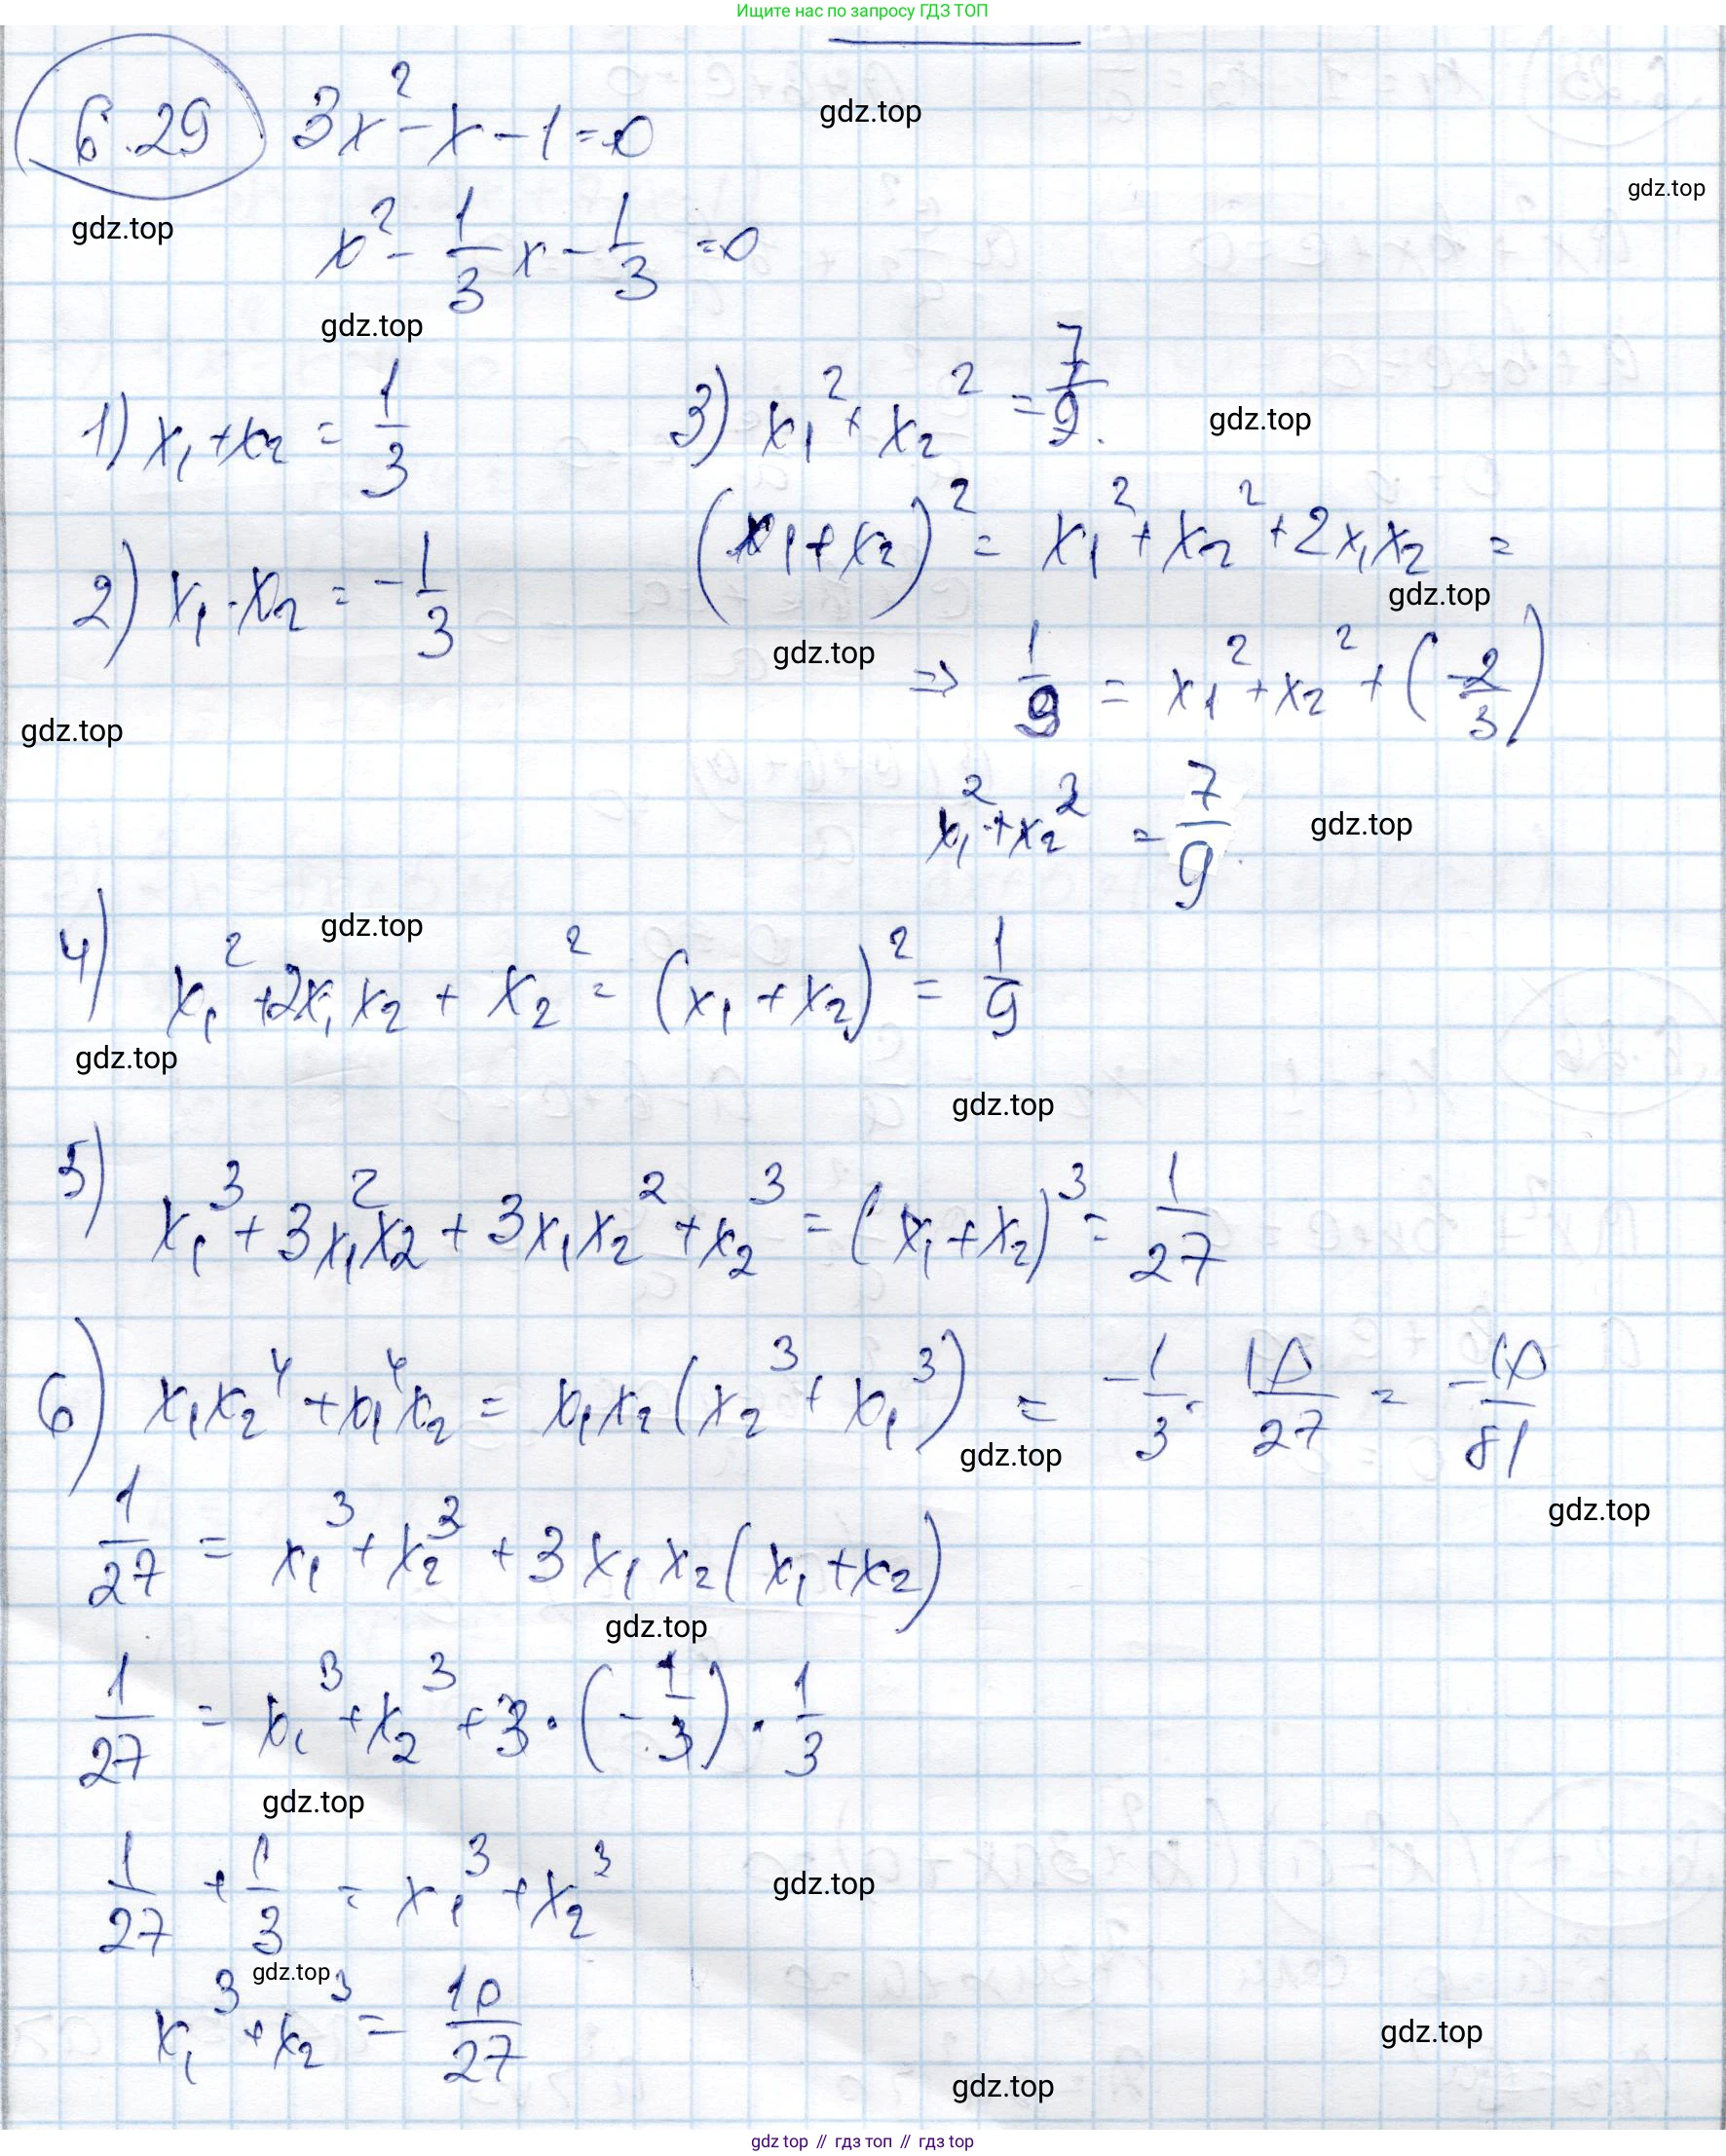 Ищите нас по запросу ГДЗ ТОП
6.29 3x² - x - 1 = 0
gdz.top
gdz.top
gdz.top
x² - 1/3 x - 1/3 = 0
gdz.top
1) x₁ + x₂ = 1/3
2) x₁ · x₂ = -1/3
gdz.top
3) x₁² + x₂² = 7/9.
gdz.top
(x₁ + x₂)² = x₁² + x₂² + 2x₁x₂ =
gdz.top
gdz.top
⇒ 1/9 = x₁² + x₂² + (-2/3)
x₁² + x₂² = 7/9
gdz.top
gdz.top
4) x₁² + 2x₁x₂ + x₂² = (x₁ + x₂)² = 1/9
gdz.top
gdz.top
5) x₁³ + 3x₁²x₂ + 3x₁x₂² + x₂³ = (x₁ + x₂)³ = 1/27
6) x₁x₂⁴ + x₁⁴x₂ = x₁x₂(x₂³ + x₁³) = -1/3 · 10/27 = -10/81
gdz.top
gdz.top
1/27 = x₁³ + x₂³ + 3x₁x₂(x₁ + x₂)
gdz.top
1/27 = x₁³ + x₂³ + 3 · (-1/3) · 1/3
gdz.top
1/27 + 1/3 = x₁³ + x₂³
gdz.top
gdz.top
x₁³ + x₂³ = 10/27
gdz.top
gdz.top
gdz top // гдз топ // гдз top